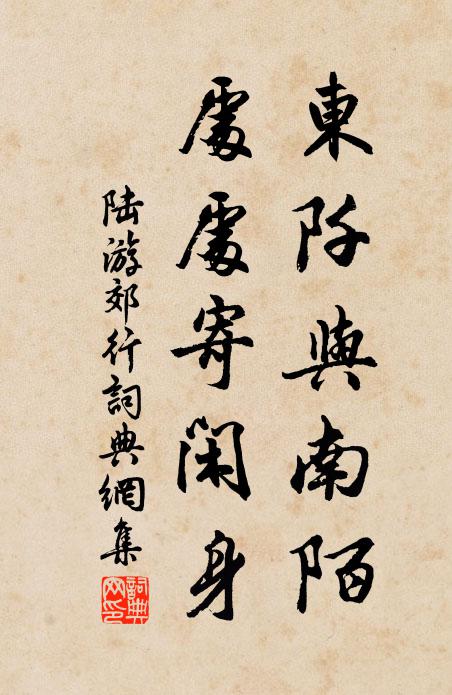 東阡與南陌
處處寄閑身
陸游郊行詞典網集
詞典
文印